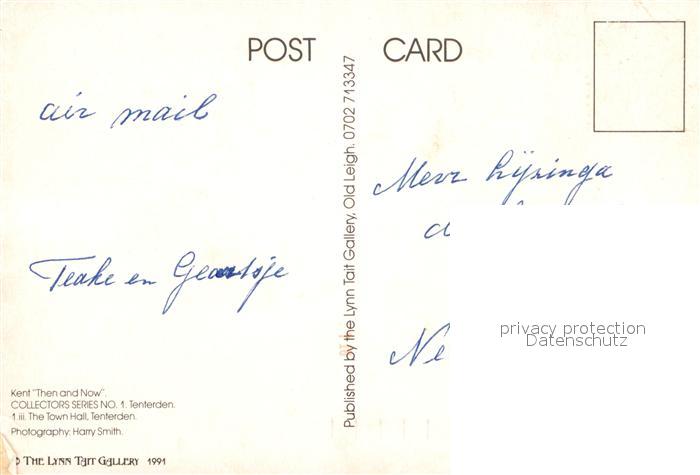 POST CARD
air mail
Teake en Geartsje
Kent "Then and Now".
COLLECTORS SERIES NO. 1. Tenterden.
1.iii. The Town Hall, Tenterden.
Photography: Harry Smith.
© THE LYNN TAIT GALLERY 1991
Published by the Lynn Tait Gallery, Old Leigh. 0702 713347
Mevr
Ne
privacy protection
Datenschutz